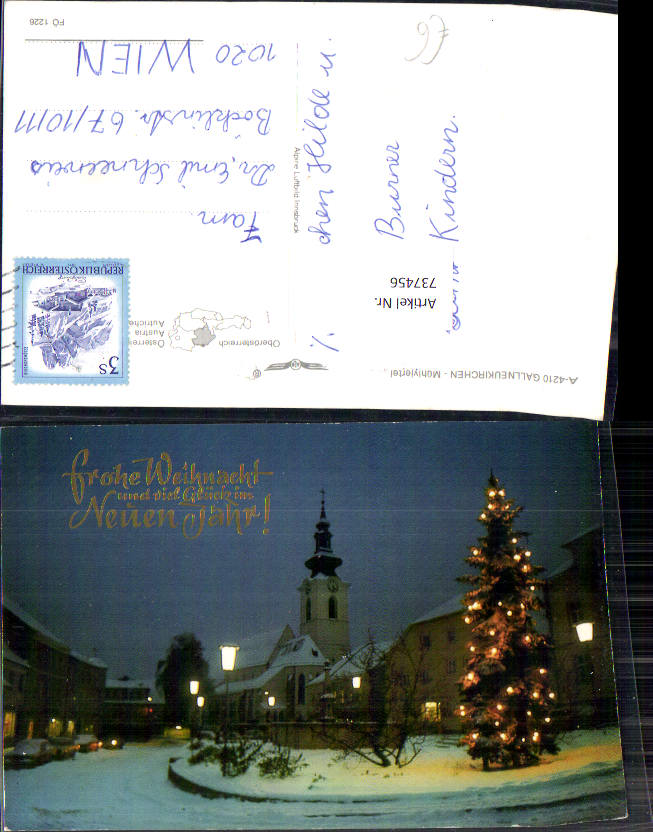 A-4210 GALLNEUKIRCHEN - Mühlviertel
Oberösterreich
Österreich
Austria
Autriche
3 S
REPUBLIK ÖSTERREICH
Artikel Nr.
737456
Fam.
Dr. Emil Schneeweis
Böcklinstr. 67/10/11
1020 WIEN
Alpine Luftbild Innsbruck
FÖ 1226
chen Hilde u.
Burner
Kindern.
Frohe Weihnacht
und viel Glück im
Neuen Jahr!